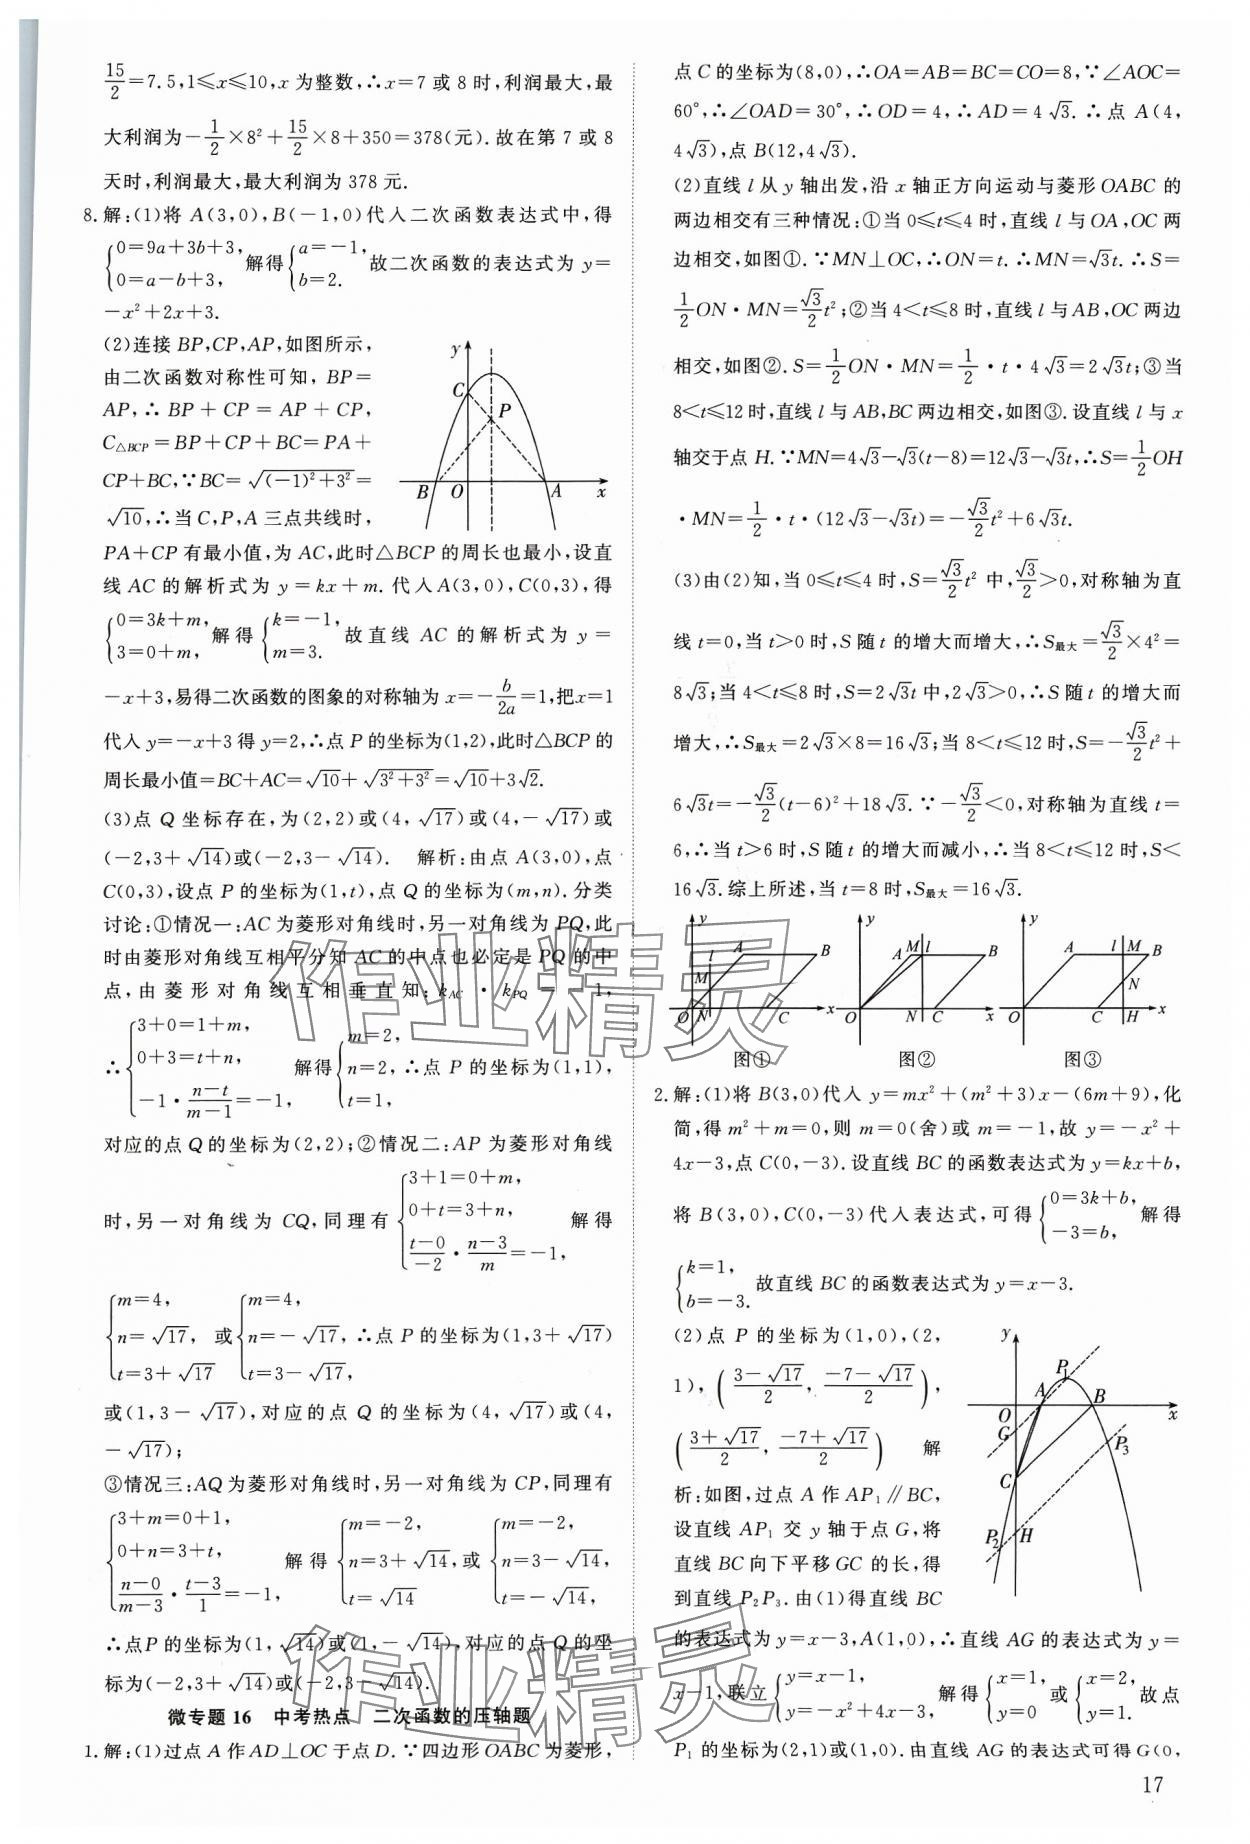 15/2=7.5,1≤x≤10,x 为整数,∴x=7 或 8 时,利润最大,最
大利润为-1/2×8²+15/2×8+350=378(元).故在第 7 或 8
天时,利润最大,最大利润为 378 元.
8.解:(1)将 A(3,0),B(-1,0)代入二次函数表达式中,得
{0=9a+3b+3, 0=a-b+3, 解得{a=-1, b=2. 故二次函数的表达式为 y=
-x²+2x+3.
(2)连接 BP,CP,AP,如图所示,
由二次函数对称性可知, BP=
AP,∴ BP + CP = AP + CP,
C△BCP=BP+CP+BC=PA+
CP+BC,∵BC=√((-1)²+3²)=
√10,∴当 C,P,A 三点共线时,
y
C
P
B O A x
PA+CP 有最小值,为 AC,此时△BCP 的周长也最小,设直
线 AC 的解析式为 y=kx+m.代入A(3,0),C(0,3),得
{0=3k+m, 3=0+m, 解得{k=-1, m=3. 故直线 AC 的解析式为 y=
-x+3,易得二次函数的图象的对称轴为 x=-b/2a=1,把x=1
代入 y=-x+3 得 y=2,∴点 P 的坐标为(1,2),此时△BCP 的
周长最小值=BC+AC=√10+√(3²+3²)=√10+3√2.
(3)点 Q 坐标存在,为(2,2)或(4,√17)或(4,-√17)或
(-2,3+√14)或(-2,3-√14). 解析:由点 A(3,0),点
C(0,3),设点 P 的坐标为(1,t),点 Q 的坐标为(m,n).分类
讨论:①情况一:AC 为菱形对角线时,另一对角线为 PQ,此
时由菱形对角线互相平分知 AC 的中点也必定是 PQ 的中
点,由菱形对角线互相垂直知:kAC·kPQ=-1,
∴{3+0=1+m, 0+3=t+n, -1·(n-t)/(m-1)=-1, 解得{m=2, n=2, t=1, ∴点 P 的坐标为(1,1),
对应的点 Q 的坐标为(2,2);②情况二:AP 为菱形对角线
时,另一对角线为 CQ,同理有{3+1=0+m, 0+t=3+n, (t-0)/-2·(n-3)/m=-1, 解得
{m=4, n=√17, t=3+√17 或{m=4, n=-√17, t=3-√17, ∴点 P 的坐标为(1,3+√17)
或(1,3-√17),对应的点 Q 的坐标为(4,√17)或(4,
-√17);
③情况三:AQ 为菱形对角线时,另一对角线为 CP,同理有
{3+m=0+1, 0+n=3+t, (n-0)/(m-3)·(t-3)/1=-1, 解得{m=-2, n=3+√14, t=√14 或{m=-2, n=3-√14, t=-√14,
∴点P 的坐标为(1,√14)或(1,-√14),对应的点 Q 的坐
标为(-2,3+√14)或(-2,3-√14).
微专题 16 中考热点 二次函数的压轴题
1.解:(1)过点 A 作 AD⊥OC 于点 D.∵四边形 OABC 为菱形,
点 C 的坐标为(8,0),∴OA=AB=BC=CO=8,∵∠AOC=
60°,∴∠OAD=30°,∴OD=4,∴AD=4√3.∴点 A(4,
4√3),点 B(12,4√3).
(2)直线 l 从 y 轴出发,沿 x 轴正方向运动与菱形 OABC 的
两边相交有三种情况:①当 0≤t≤4 时,直线 l 与 OA,OC 两
边相交,如图①.∵MN⊥OC,∴ON=t.∴MN=√3t.∴S=
1/2ON·MN=√3/2t²;②当 4<t≤8 时,直线 l 与 AB,OC 两边
相交,如图②.S=1/2ON·MN=1/2·t·4√3=2√3t;③当
8<t≤12 时,直线 l 与 AB,BC 两边相交,如图③.设直线 l 与 x
轴交于点 H.∵MN=4√3-√3(t-8)=12√3-√3t,∴S=1/2OH
·MN=1/2·t·(12√3-√3t)=-√3/2t²+6√3t.
(3)由(2)知,当 0≤t≤4 时,S=√3/2t² 中,√3/2>0,对称轴为直
线 t=0,当 t>0 时,S 随 t 的增大而增大,∴S最大=√3/2×4²=
8√3;当 4<t≤8 时,S=2√3t 中,2√3>0,∴S 随 t 的增大而
增大,∴S最大=2√3×8=16√3;当 8<t≤12 时,S=-√3/2t²+
6√3t=-√3/2(t-6)²+18√3.∵-√3/2<0,对称轴为直线 t=
6,∴当 t>6 时,S 随 t 的增大而减小,∴当 8<t≤12 时,S<
16√3.综上所述,当 t=8 时,S最大=16√3.
y l A B M O N C x
y A M l B O N C x
y A l M B N O C H x
图① 图② 图③
2.解:(1)将 B(3,0)代入 y=mx²+(m²+3)x-(6m+9),化
简,得 m²+m=0,则 m=0(舍)或 m=-1,故 y=-x²+
4x-3,点 C(0,-3).设直线 BC 的函数表达式为 y=kx+b,
将 B(3,0),C(0,-3)代入表达式,可得{0=3k+b, -3=b, 解得
{k=1, b=-3. 故直线 BC 的函数表达式为 y=x-3.
(2)点 P 的坐标为(1,0),(2,
1),((3-√17)/2,(-7-√17)/2),
((3+√17)/2,(-7+√17)/2) 解
析:如图,过点 A 作 AP₁∥BC,
设直线 AP₁ 交 y 轴于点 G,将
直线 BC 向下平移 GC 的长,得
到直线 P₂P₃.由(1)得直线 BC
y
P₁
A B
O x
G
P₃
C
P₂ H
的表达式为 y=x-3,A(1,0),∴直线 AG 的表达式为 y=
x-1,联立{y=x-1, y=-x²+4x-3, 解得{x=1, y=0 或{x=2, y=1. 故点
P₁ 的坐标为(2,1)或(1,0).由直线 AG 的表达式可得 G(0,
17
作业精灵
作业精灵